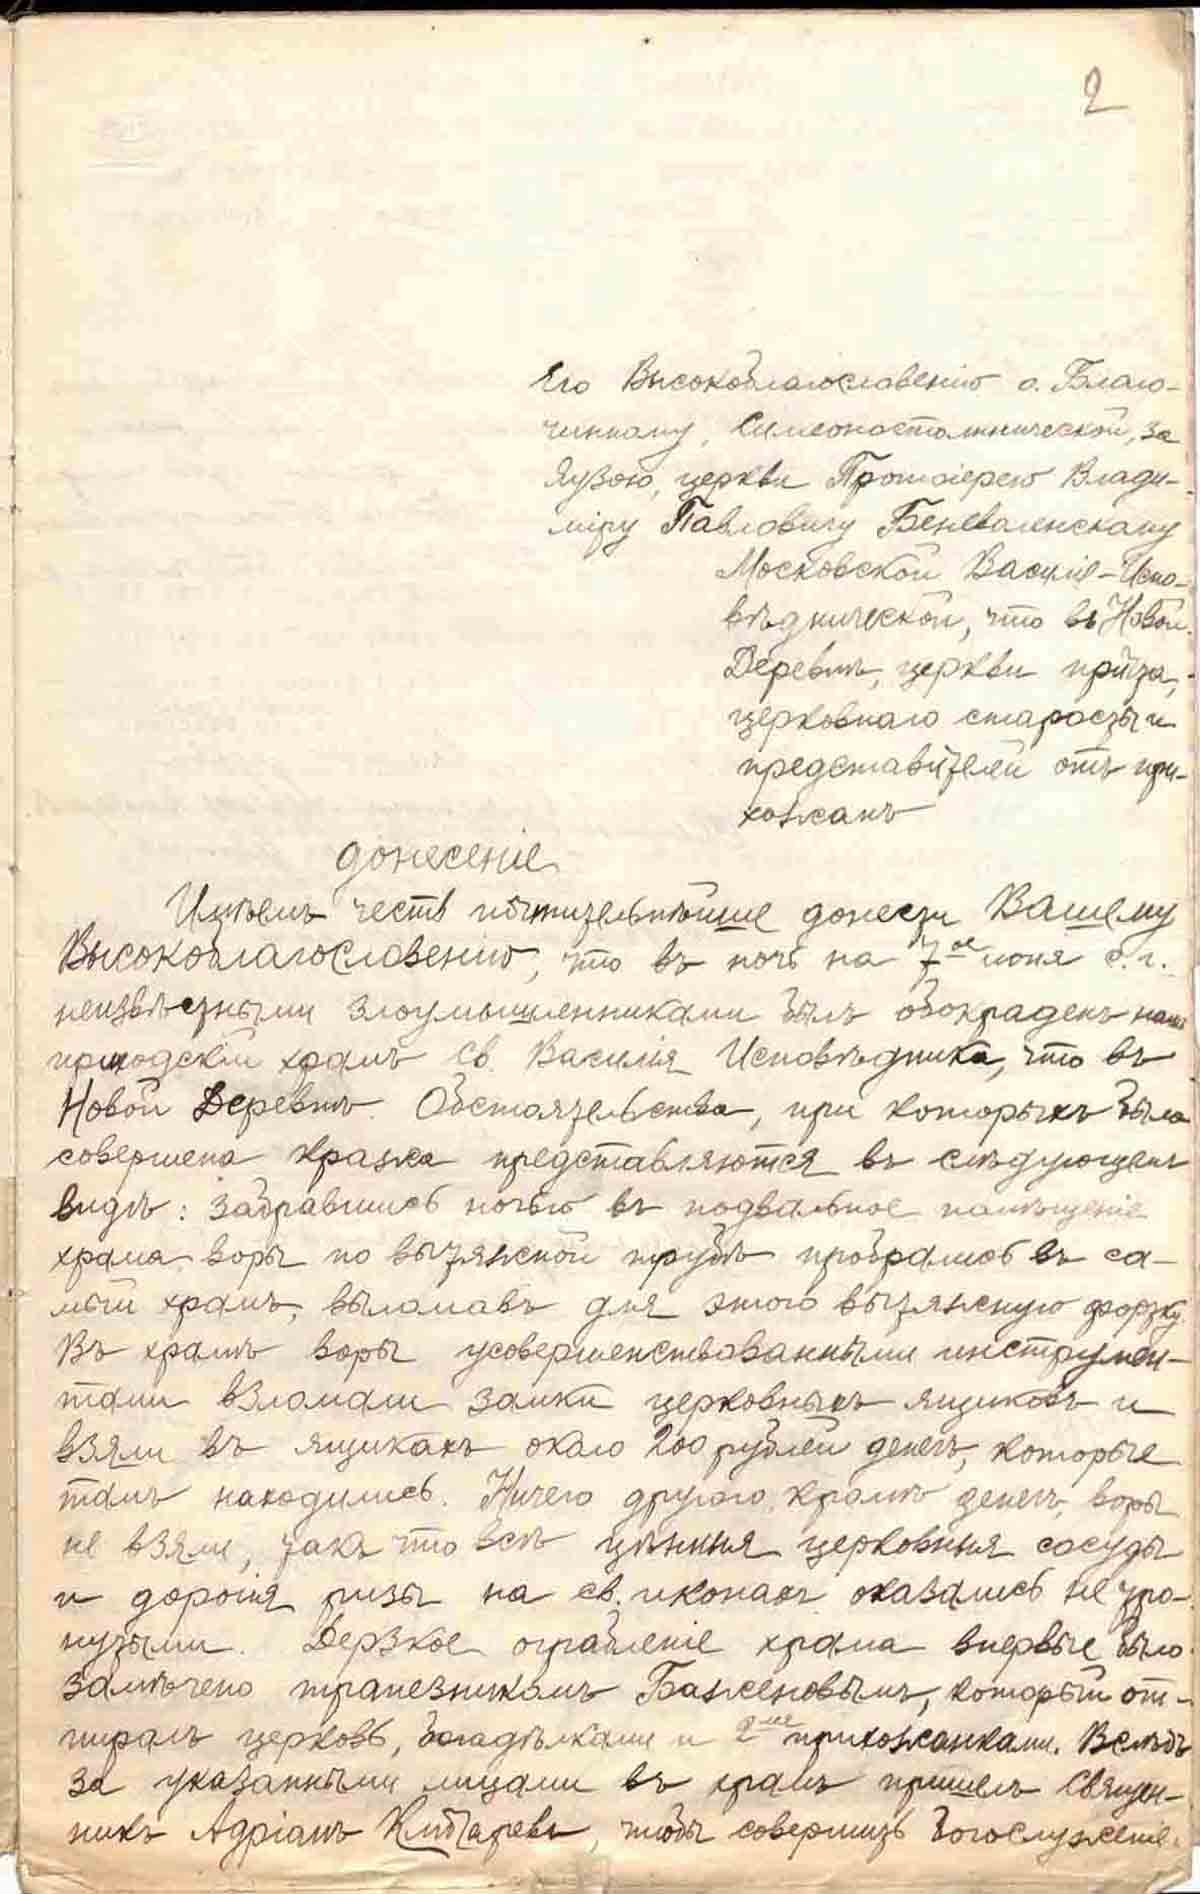 2
Его Высокоблагословенію о. Благо-
чинному, Симеоностолпнической, за
Яузою, церкви Протоіерею Влади-
міру Павловичу Беневоленскому
Московской Василіе-Испо-
вѣднической, что въ Новой
Деревнѣ, церкви причта,
церковнаго старосты и
представителей отъ при-
хожанъ
донесеніе
Имѣемъ честь почтительнѣйше донести Вашему
Высокоблагословенію, что въ ночь на 7ое июня с. г.
неизвѣстными злоумышленниками былъ обокраденъ нашъ
приходскій храмъ Св. Василія Исповѣдника, что въ
Новой Деревнѣ. Обстоятельства, при которыхъ была
совершена кража представляются въ слѣдующемъ
видѣ: забравшись ночью въ подвальное помѣщеніе
храма воры по вытяжной трубѣ пробрались въ са-
мый храмъ, выломавъ для этого вытяжную форточку.
Въ храмѣ воры усовершенствованными инструмен-
тами взломали замки церковныхъ ящиковъ и
взяли въ ящикахъ около 200 рублей денегъ, которые
тамъ находились. Ничего другого, кромѣ денегъ, воры
не взяли, такъ что всѣ цѣнныя церковныя сосуды
и дорогія ризы на св. иконахъ оказались не тро-
нутыми. Дерзкое ограбленіе храма впервые было
замѣчено трапезникомъ Баженовымъ, который от-
пиралъ церковь, богадѣлками и 2мя прихожанками. Вслѣдъ
за указанными лицами въ храмъ пришелъ Священ-
никъ Адріанъ , чтобы совершить богослуженіе.